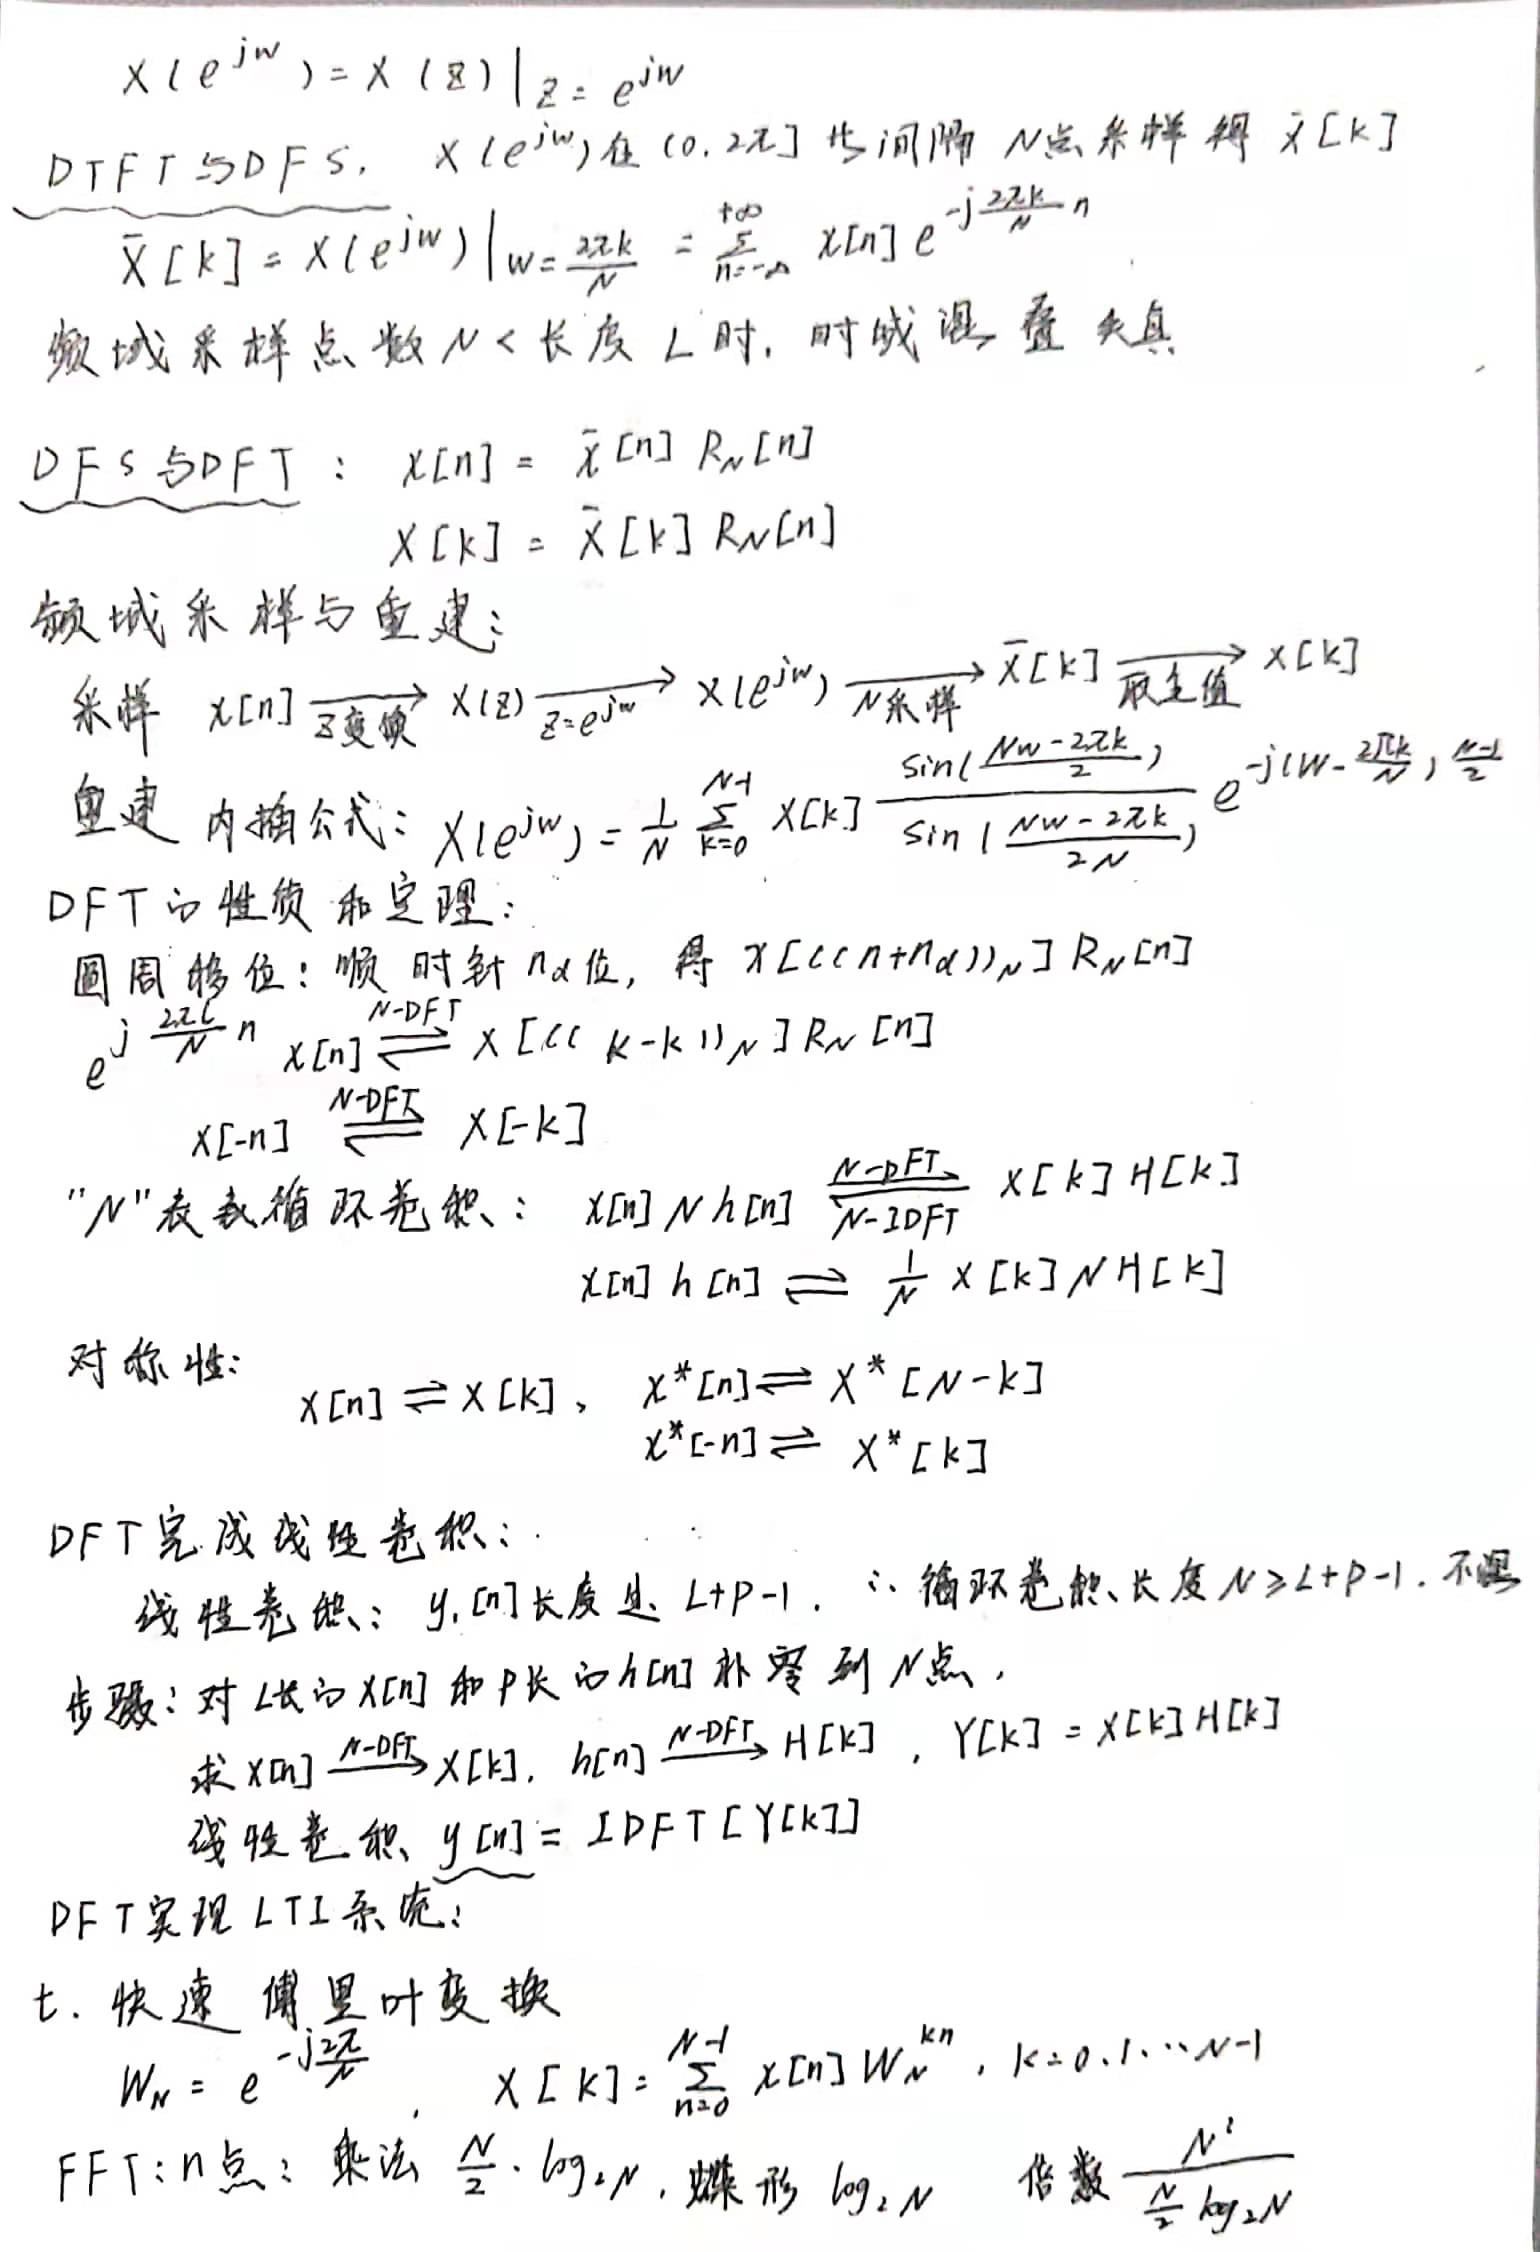 X(e^{jw}) = X(z)|_{z=e^{jw}}
DTFT与DFS. X(e^{jw})在(0.2π]等间隔N点采样得 x̄[k]
X̄[k] = X(e^{jw})|_{w=\frac{2πk}{N}} = \sum_{n=-∞}^{+∞} x[n] e^{-j\frac{2πk}{N}n}
频域采样点数N<长度L时,时域混叠失真
DFS与DFT: x[n] = x̄[n] R_N[n]
X[k] = X̄[k] R_N[n]
频域采样与重建:
采样 x[n] \xrightarrow{Z变换} X(z) \xrightarrow{z=e^{jw}} X(e^{jw}) \xrightarrow{N采样} X̄[k] \xrightarrow{取主值} X[k]
重建 内插公式: X(e^{jw}) = \frac{1}{N} \sum_{k=0}^{N-1} X[k] \frac{sin(\frac{Nw-2πk}{2})}{sin(\frac{Nw-2πk}{2N})} e^{-j(w-\frac{2πk}{N})\frac{N-1}{2}}
DFT的性质和定理:
圆周移位:顺时针n_d位,得 x[((n+n_d))_N] R_N[n]
e^{j\frac{2πl}{N}n} x[n] \overset{N-DFT}{⇌} X[((k-k))_N] R_N[n]
x[-n] \overset{N-DFT}{⇌} X[-k]
"N"表示循环卷积: x[n] N h[n] \xrightleftharpoons[N-IDFT]{N-DFT} X[k] H[k]
x[n] h[n] ⇌ \frac{1}{N} X[k] N H[k]
对称性:
x[n] ⇌ X[k], x*[n] ⇌ X*[N-k]
x*[-n] ⇌ X*[k]
DFT完成线性卷积:
线性卷积: y_1[n]长度是L+P-1. ∴循环卷积长度N≥L+P-1.不混
步骤:对L长的x[n]和P长的h[n]补零到N点,
求x[n] \xrightarrow{N-DFT} X[k], h[n] \xrightarrow{N-DFT} H[k], Y[k] = X[k] H[k]
线性卷积 y[n] = IDFT[Y[k]]
DFT实现LTI系统:
七. 快速傅里叶变换
W_N = e^{-j\frac{2π}{N}}, X[k] = \sum_{n=0}^{N-1} x[n] W_N^{kn}, k=0.1.…N-1
FFT:n点:乘法 \frac{N}{2}·log_2N,蝶形 log_2N 倍数 \frac{N^2}{\frac{N}{2} log_2N}